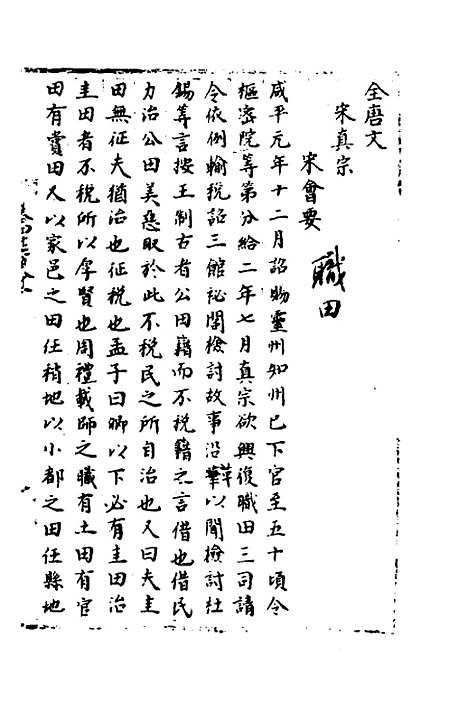 全唐文
宋真宗
宋會要
職田
咸平元年十二月詔賜靈州知州已下官至五十頃令
樞密院等第分給二年七月真宗欲興復職田三司請
令依例輸稅詔三館祕閣檢討故事沿革以聞檢討杜
鎬等言按王制古者公田藉而不稅藉之言借也借民
力治公田美惡取於此不稅民之所自治也又曰夫圭
田無征夫猶治也征稅也孟子曰卿以下必有圭田治
圭田者不稅所以厚賢也周禮載師之職有士田有官
田有賞田又以家邑之田任稍地以小都之田任縣地